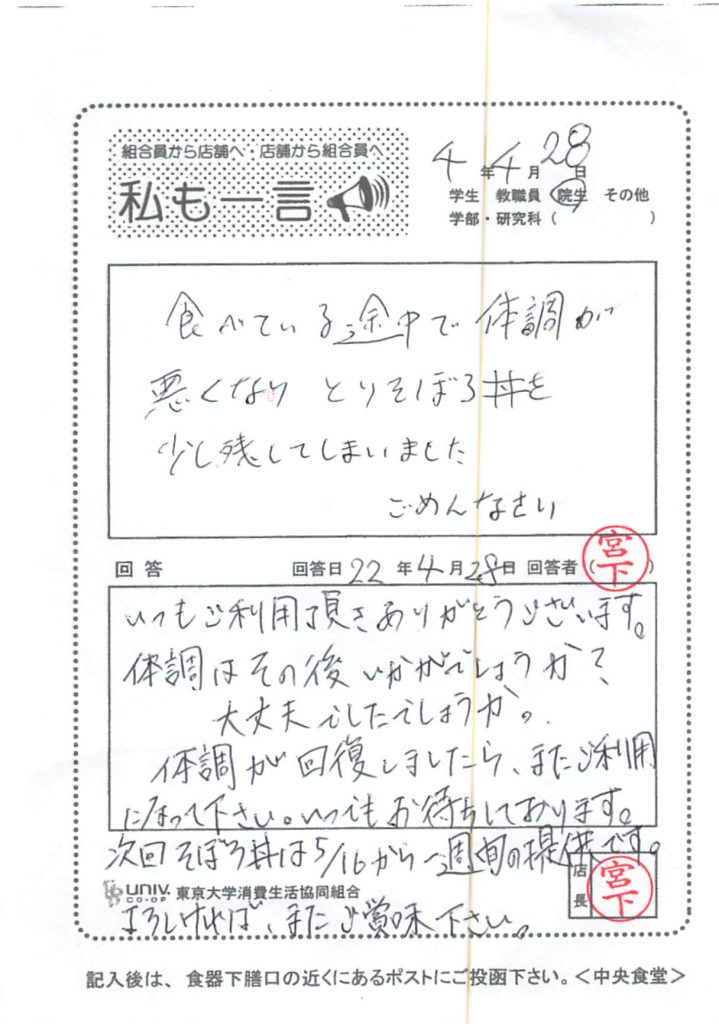 組合員から店舗へ・店舗から組合員へ
私も一言
4年4月28日
学生 教職員 院生 その他
学部・研究科( )
食べている途中で体調が
悪くなり とりそぼろ丼を
少し残してしまいました
ごめんなさい
回答 回答日22年4月28日 回答者(宮下)
いつもご利用頂きありがとうございます。
体調はその後いかがでしょうか?
大丈夫でしたでしょうか。
体調が回復しましたら、またご利用
になって下さい。いつでもお待ちしております。
次回そぼろ丼は5/16から一週間の提供です。
店長 宮下
UNIV. CO-OP 東京大学消費生活協同組合
よろしければ、またご賞味下さい。
記入後は、食器下膳口の近くにあるポストにご投函下さい。<中央食堂>